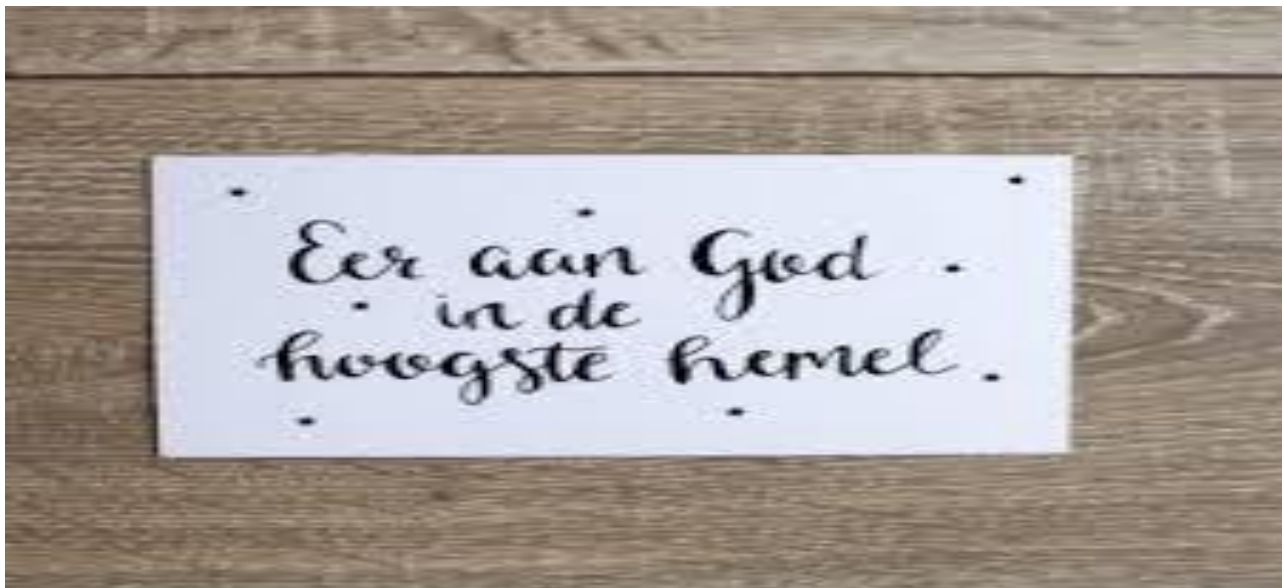 Eer aan God
in de
hoogste hemel